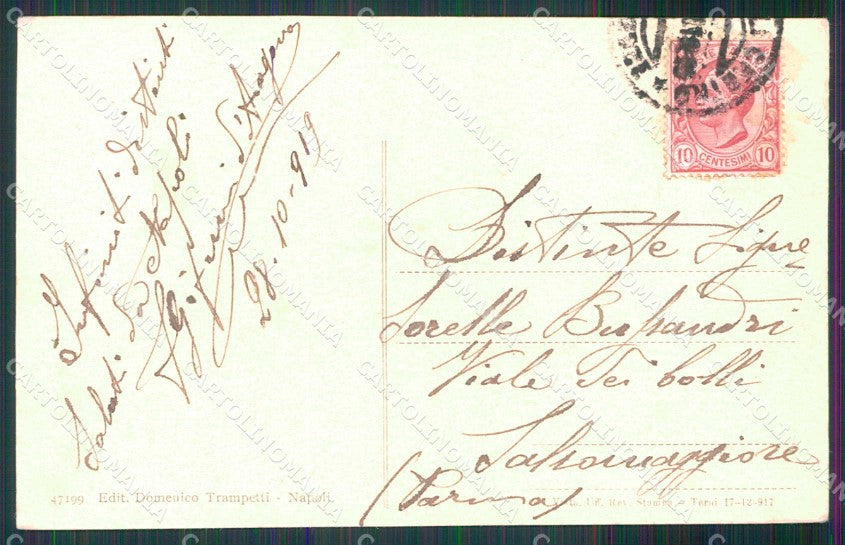 Infiniti distinti
Saluti da Napoli
28-10-919
10 CENTESIMI 10
Distinte Sig.ne
Sorelle Bussandri
Viale Dei bolli
Salsomaggiore
(Parma)
47199 Edit. Domenico Trampetti - Napoli.
Uf. Rev. Stampa - Terni 17-12-917
CARTOLINOMANIA